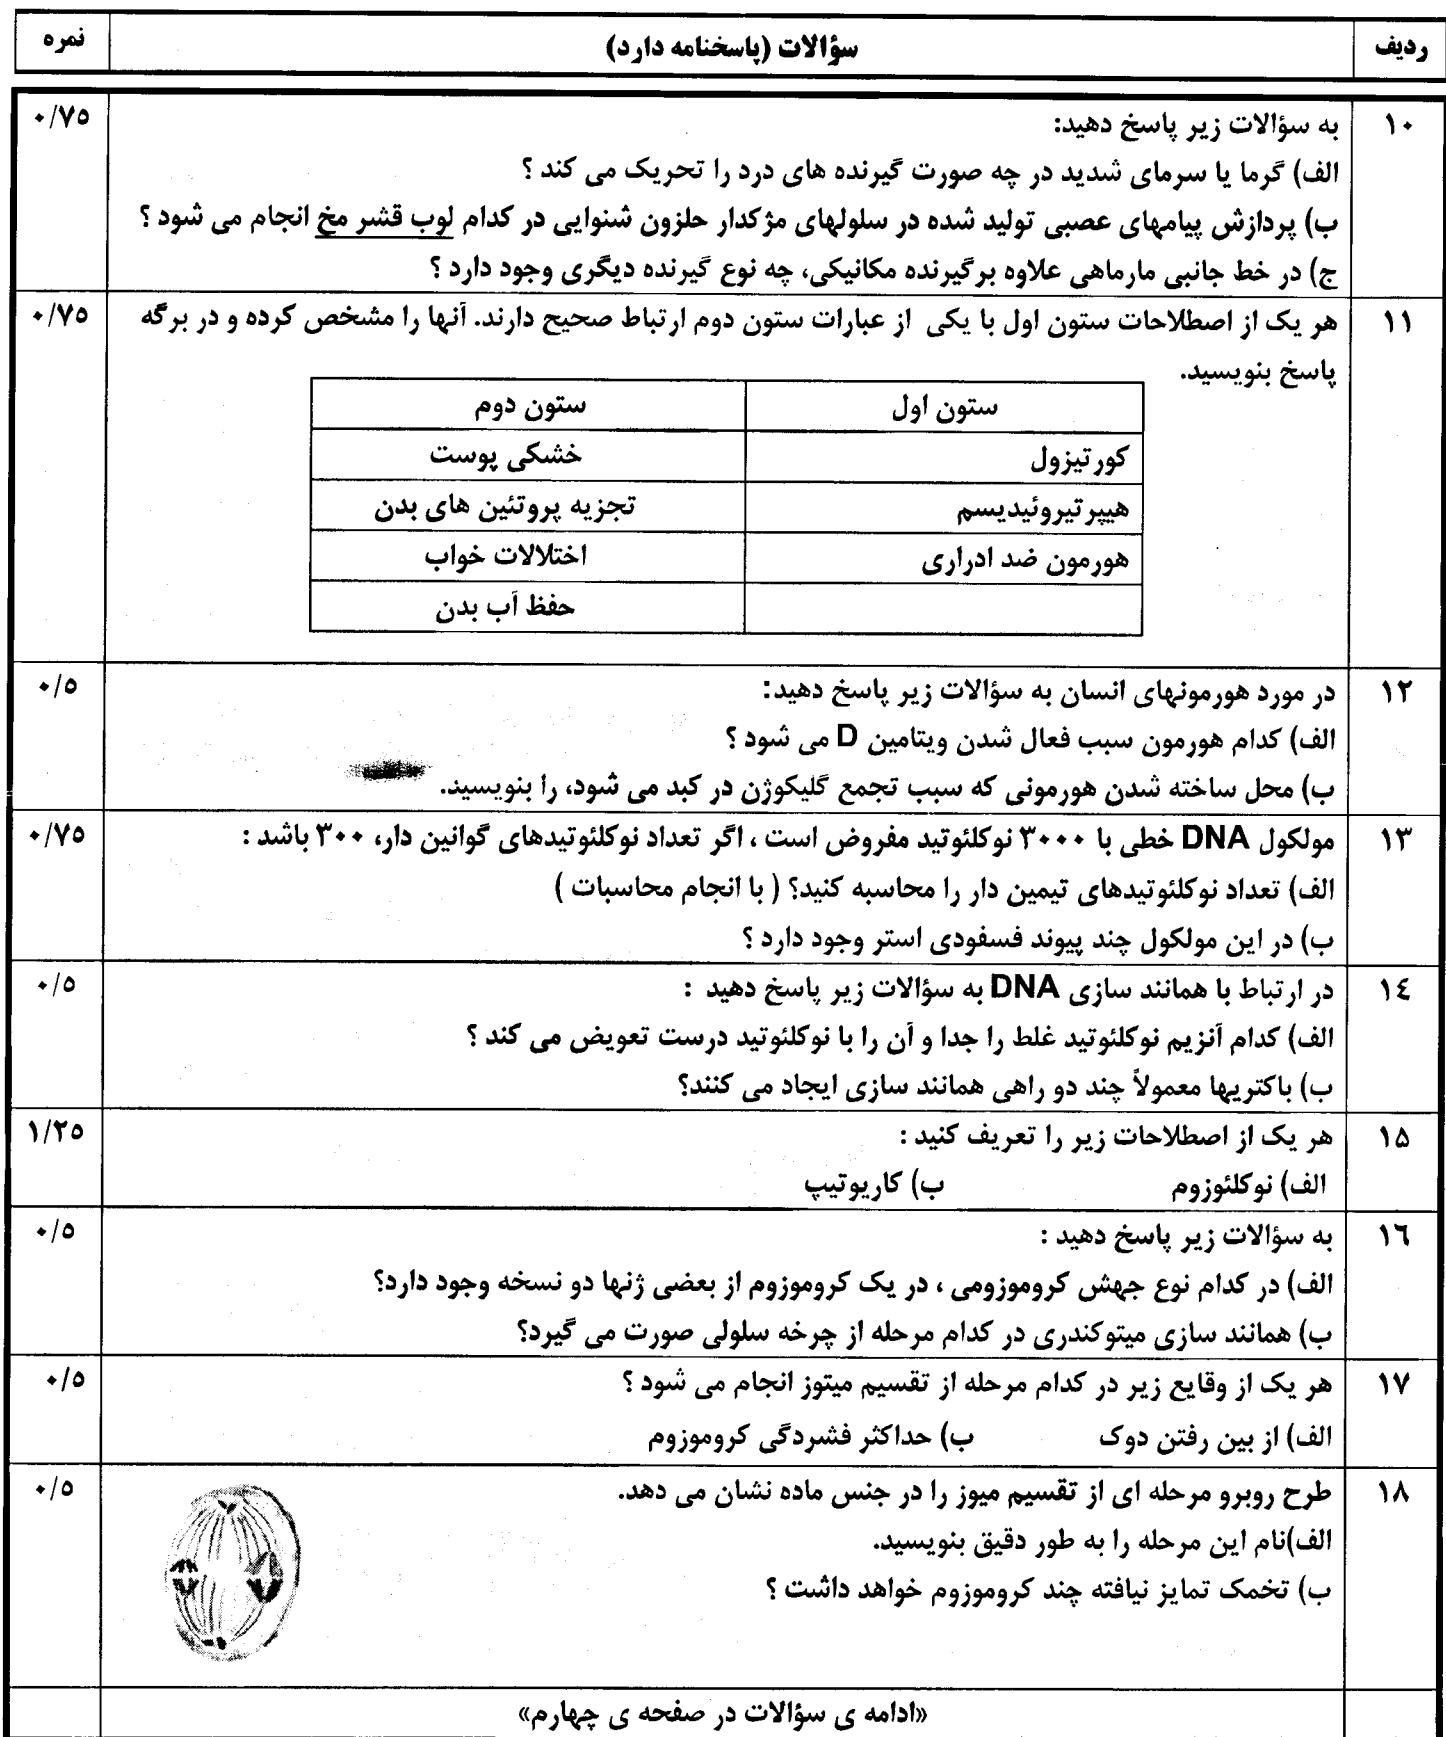 ردیف سؤالات (پاسخنامه دارد) نمره
۱۰ به سؤالات زیر پاسخ دهید: ۰/۷۵
الف) گرما یا سرمای شدید در چه صورت گیرنده های درد را تحریک می کند ؟
ب) پردازش پیامهای عصبی تولید شده در سلولهای مژکدار حلزون شنوایی در کدام لوب قشر مخ انجام می شود ؟
ج) در خط جانبی مارماهی علاوه برگیرنده مکانیکی، چه نوع گیرنده دیگری وجود دارد ؟
۱۱ هر یک از اصطلاحات ستون اول با یکی از عبارات ستون دوم ارتباط صحیح دارند. آنها را مشخص کرده و در برگه ۰/۷۵
پاسخ بنویسید.
ستون اول ستون دوم
کورتیزول خشکی پوست
هیپرتیروئیدیسم تجزیه پروتئین های بدن
هورمون ضد ادراری اختلالات خواب
حفظ آب بدن
۱۲ در مورد هورمونهای انسان به سؤالات زیر پاسخ دهید: ۰/۵
الف) کدام هورمون سبب فعال شدن ویتامین D می شود ؟
ب) محل ساخته شدن هورمونی که سبب تجمع گلیکوژن در کبد می شود، را بنویسید.
۱۳ مولکول DNA خطی با ۳۰۰۰ نوکلئوتید مفروض است ، اگر تعداد نوکلئوتیدهای گوانین دار، ۳۰۰ باشد : ۰/۷۵
الف) تعداد نوکلئوتیدهای تیمین دار را محاسبه کنید؟ ( با انجام محاسبات )
ب) در این مولکول چند پیوند فسفودی استر وجود دارد ؟
۱٤ در ارتباط با همانند سازی DNA به سؤالات زیر پاسخ دهید : ۰/۵
الف) کدام آنزیم نوکلئوتید غلط را جدا و آن را با نوکلئوتید درست تعویض می کند ؟
ب) باکتریها معمولاً چند دو راهی همانند سازی ایجاد می کنند؟
۱۵ هر یک از اصطلاحات زیر را تعریف کنید : ۱/۲۵
الف) نوکلئوزوم ب) کاریوتیپ
۱٦ به سؤالات زیر پاسخ دهید : ۰/۵
الف) در کدام نوع جهش کروموزومی ، در یک کروموزوم از بعضی ژنها دو نسخه وجود دارد؟
ب) همانند سازی میتوکندری در کدام مرحله از چرخه سلولی صورت می گیرد؟
۱۷ هر یک از وقایع زیر در کدام مرحله از تقسیم میتوز انجام می شود ؟ ۰/۵
الف) از بین رفتن دوک ب) حداکثر فشردگی کروموزوم
۱۸ طرح روبرو مرحله ای از تقسیم میوز را در جنس ماده نشان می دهد. ۰/۵
الف)نام این مرحله را به طور دقیق بنویسید.
ب) تخمک تمایز نیافته چند کروموزوم خواهد داشت ؟
«ادامه ی سؤالات در صفحه ی چهارم»